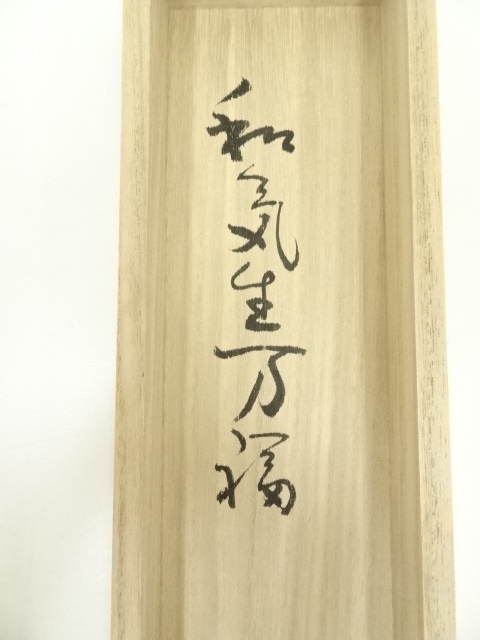 和気生万福